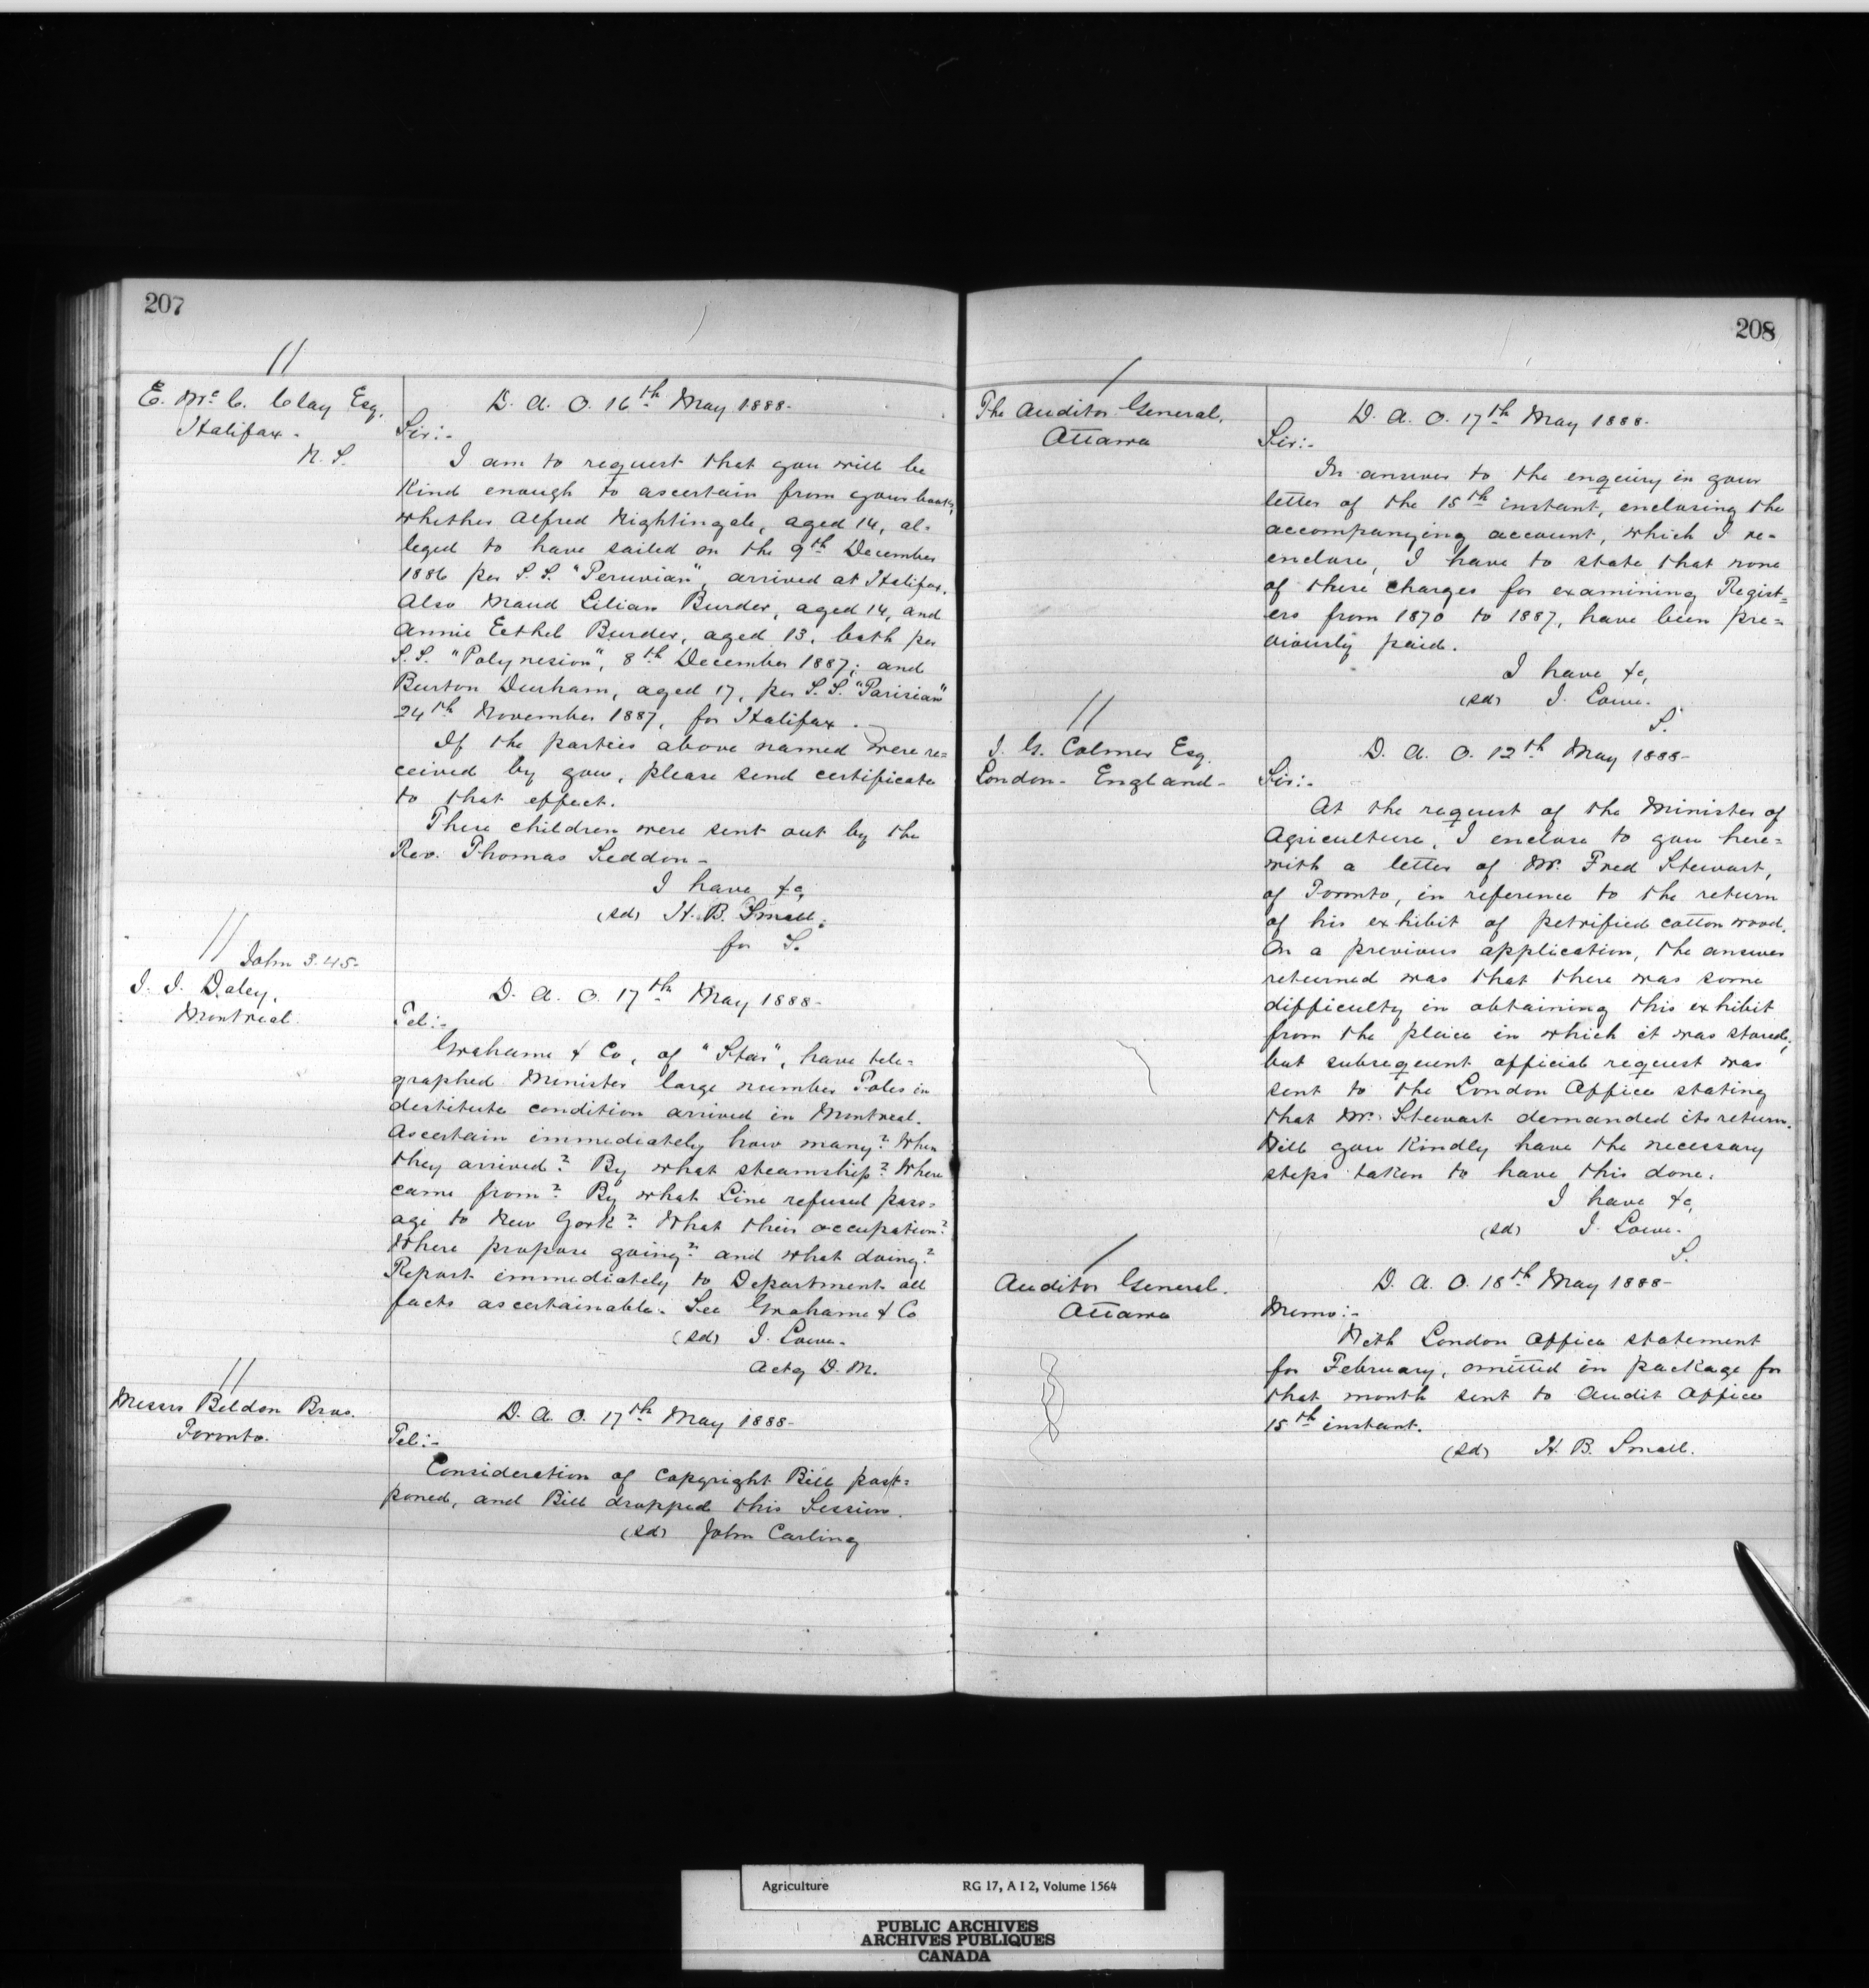 207
E. McC. Clay Esq.
Halifax.
N. S.
D. A. O. 16th May 1888.
Sir:-
I am to request that you will be
kind enough to ascertain from your books,
whether Alfred Nightingale, aged 14, al=
leged to have sailed on the 9th December
1886 per S. S. "Peruvian", arrived at Halifax.
Also Maud Lilian Burder, aged 14, and
Annie Eethel Burder, aged 13, both per
S. S. "Polynesion", 8th December 1887; and
Burton Durham, aged 17, per S. S. "Parisian"
24th November 1887, for Halifax.
If the parties above named were re=
ceived by you, please send certificate
to that effect.
These children were sent out by the
Rev. Thomas Seddon-
I have &c,
(sd) H. B. Small.
for S.
John 3.45-
J. J. Daley,
Montreal.
D. A. O. 17th May 1888-
Tel:-
Grahame & Co, of "Star", have tele=
graphed Minister large number Poles in
destitute condition arrived in Montreal.
Ascertain immediately how many? When
they arrived? By what steamship? Where
came from? By what Line refused pass=
age to New York? What their occupation?
Where propose going? and what doing?
Report immediately to Department all
facts ascertainable. See Grahame & Co
(sd) J. Lowe-
Actg D. M.
Messrs Beldon Bros.
Toronto.
D. A. O. 17th May 1888-
Tel:-
Consideration of Copyright Bill post=
poned, and Bill dropped this Session.
(sd) John Carling
208
The Auditor General,
Ottawa
D. A. O. 17th May 1888.
Sir:-
In answer to the enquiry in your
letter of the 15th instant, enclosing the
accompanying account, which I re=
enclose, I have to state that none
of these charges for examining Regist=
ers from 1870 to 1887, have been pre=
viously paid.
I have &c,
(sd) J. Lowe.
S.
J. G. Colmer Esq.
London- England-
D. A. O. 12th May 1888-
Sir:-
At the request of the Minister of
Agriculture, I enclose to you here=
with a letter of Mr. Fred Stewart,
of Toronto, in reference to the return
of his exhibit of petrified cotton wood.
On a previous application, the answer
returned was that there was some
difficulty in obtaining this exhibit
from the place in which it was stored;
but subsequent official request was
sent to the London Office stating
that Mr. Stewart demanded its return.
Will you kindly have the necessary
steps taken to have this done.
I have &c,
(sd) J. Lowe.
S.
Auditor General.
Ottawa
D. A. O. 18th May 1888-
Memo:-
With London Office statement
for February, omitted in package for
that month sent to Audit Office
15th instant.
(sd) H. B. Small.
Agriculture RG 17, A I 2, Volume 1564
PUBLIC ARCHIVES
ARCHIVES PUBLIQUES
CANADA